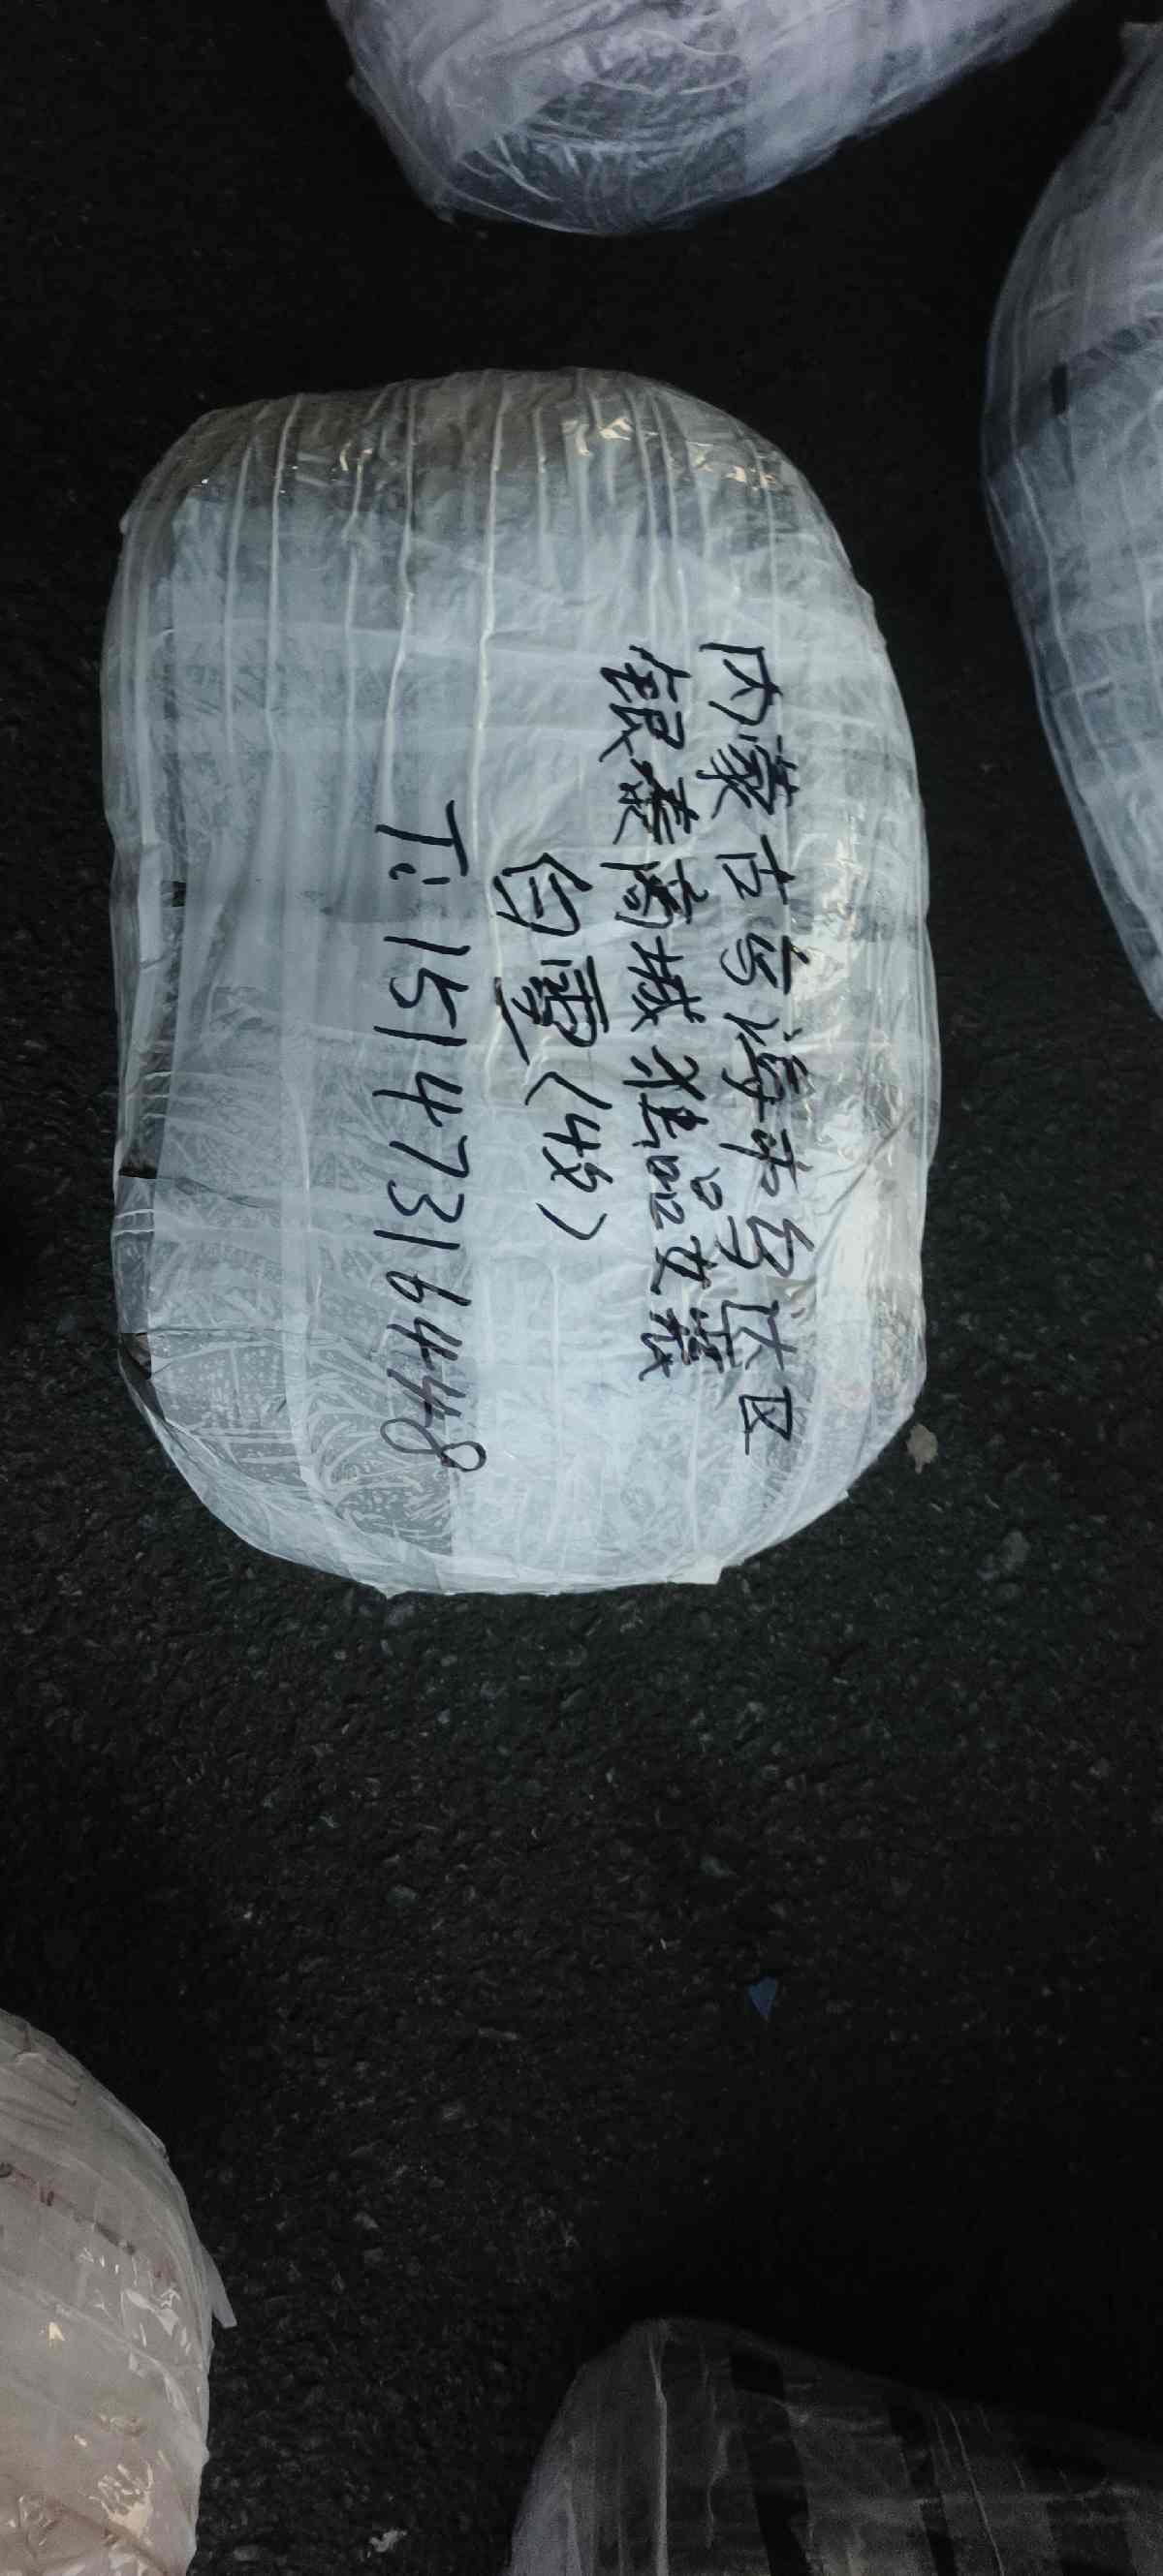 内蒙古乌海市乌达区
银泰商城雅品女裝
白雪(4袋)
T:15147316448